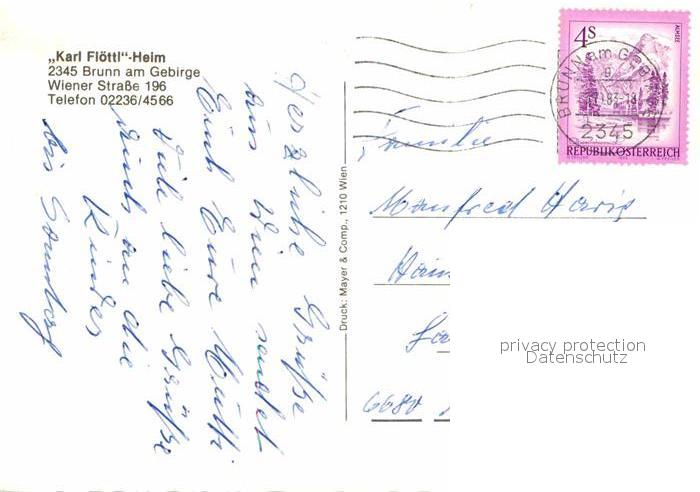 „Karl Flöttl"-Heim
2345 Brunn am Gebirge
Wiener Straße 196
Telefon 02236/4566
Herzliche Grüße
aus Wien sendet
Euch Eure Mutti
Viele liebe Grüße
auch an die
Kinder
bis Sonntag
Druck: Mayer & Comp., 1210 Wien
4S
ALMSEE
BRUNN am GEB
2345
REPUBLIK ÖSTERREICH
Familie
Manfred
6680
privacy protection
Datenschutz